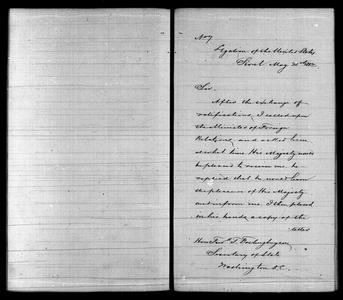 No 7
Legation of the United States
Seoul May 20th
Sir.
After the exchange of
ratifications, I called upon
the Minister of Foreign
Relations, and asked him
at what time His Majesty would
be pleased to receive me, he
replied that he would learn
the pleasure of His Majesty
and inform me. I then placed
in his hands, a copy of the
letter
Honl. Fredk. T. Frelinghuysen
Secretary of State
Washington D.C.